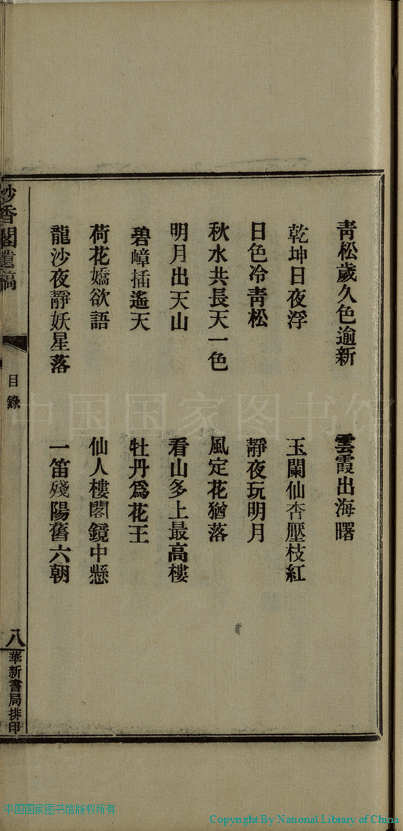 青松歲久色逾新
雲霞出海曙
乾坤日夜浮
玉蘭仙杏壓枝紅
日色冷青松
靜夜玩明月
秋水共長天一色
風定花猶落
明月出天山
看山多上最高樓
碧嶂插遙天
牡丹爲花王
荷花嬌欲語
仙人樓閣鏡中懸
龍沙夜靜妖星落
一笛殘陽舊六朝
香閣遺稿
目錄
八
華新書局排印
中国国家图书馆
中国国家图书馆版权所有
Copyright By National Library of China